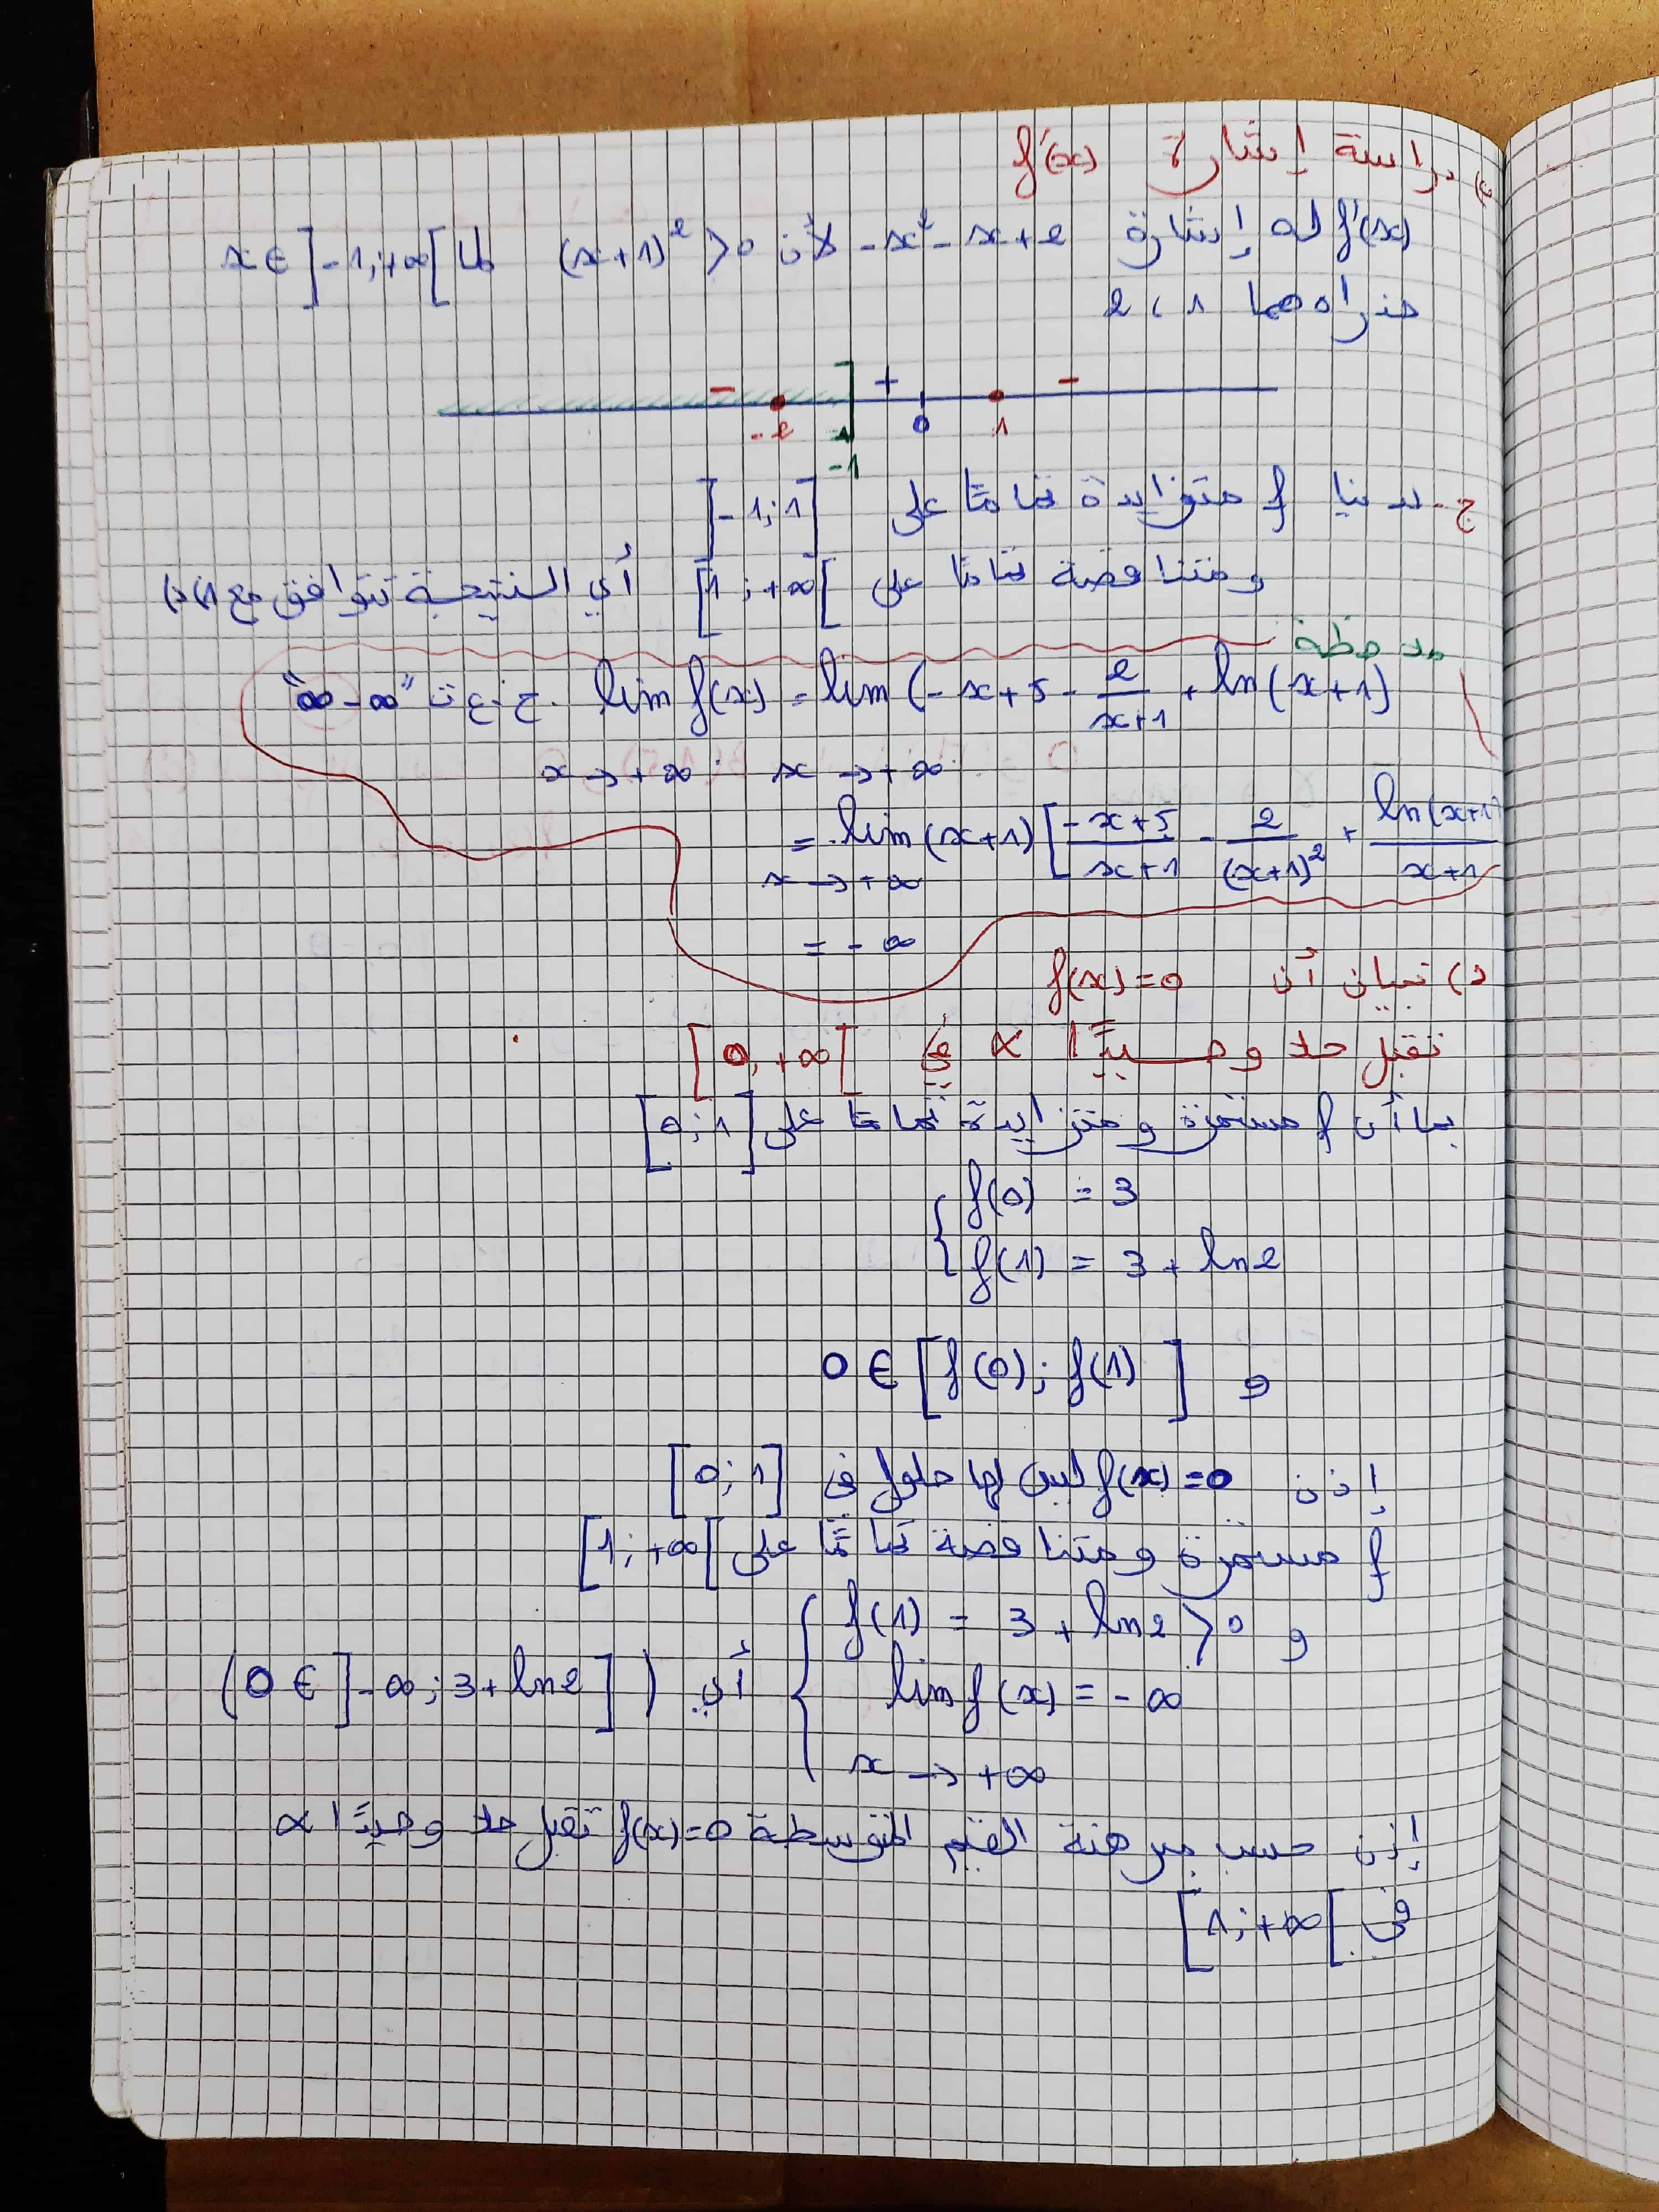 دراسة إشارة f'(x)
f'(x) له إشارة -x²-x+2 لأن (x+1)²>0 لما x∈]-1;+∞[
جذراه هما 1 ، 2
- + -
-2 -1 0 1
-1
ج- لدينا f متزايدة تمامًا على ]-1;1]
ومتناقصة تمامًا على [1;+∞[ أي النتيجة تتوافق مع
ملاحظة
lim f(x) = lim (-x+5-\frac{2}{x+1}+ln(x+1) ح.ع.ت "∞-∞"
x→+∞ x→+∞
= lim (x+1)[\frac{-x+5}{x+1}-\frac{2}{(x+1)²}+\frac{ln(x+1)}{x+1}
x→+∞
= -∞
د) تبيان أن f(x)=0
تقبل حلا وحيدًا α في [0;+∞[
بما أن f مستمرة ومتزايدة تمامًا على [0;1]
{ f(0) = 3
f(1) = 3+ln2
و 0∈[f(0);f(1)]
إذن f(x)=0 ليس لها حلول في [0;1]
f مستمرة ومتناقصة تمامًا على [1;+∞[
و { f(1) = 3+ln2>0
lim f(x) = -∞ أي (0∈]-∞;3+ln2])
x→+∞
إذن حسب مبرهنة القيم المتوسطة f(x)=0 تقبل حلا وحيدًا α
في [1;+∞[